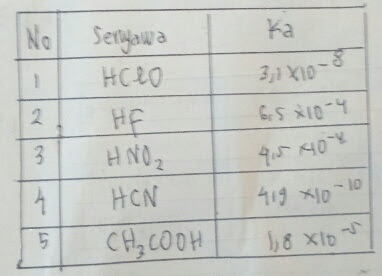 No Senyawa Ka
1 HClO 3,1 × 10⁻⁸
2 HF 6,5 × 10⁻⁴
3 HNO₂ 4,5 × 10⁻⁴
4 HCN 4,9 × 10⁻¹⁰
5 CH₃COOH 1,8 × 10⁻⁵